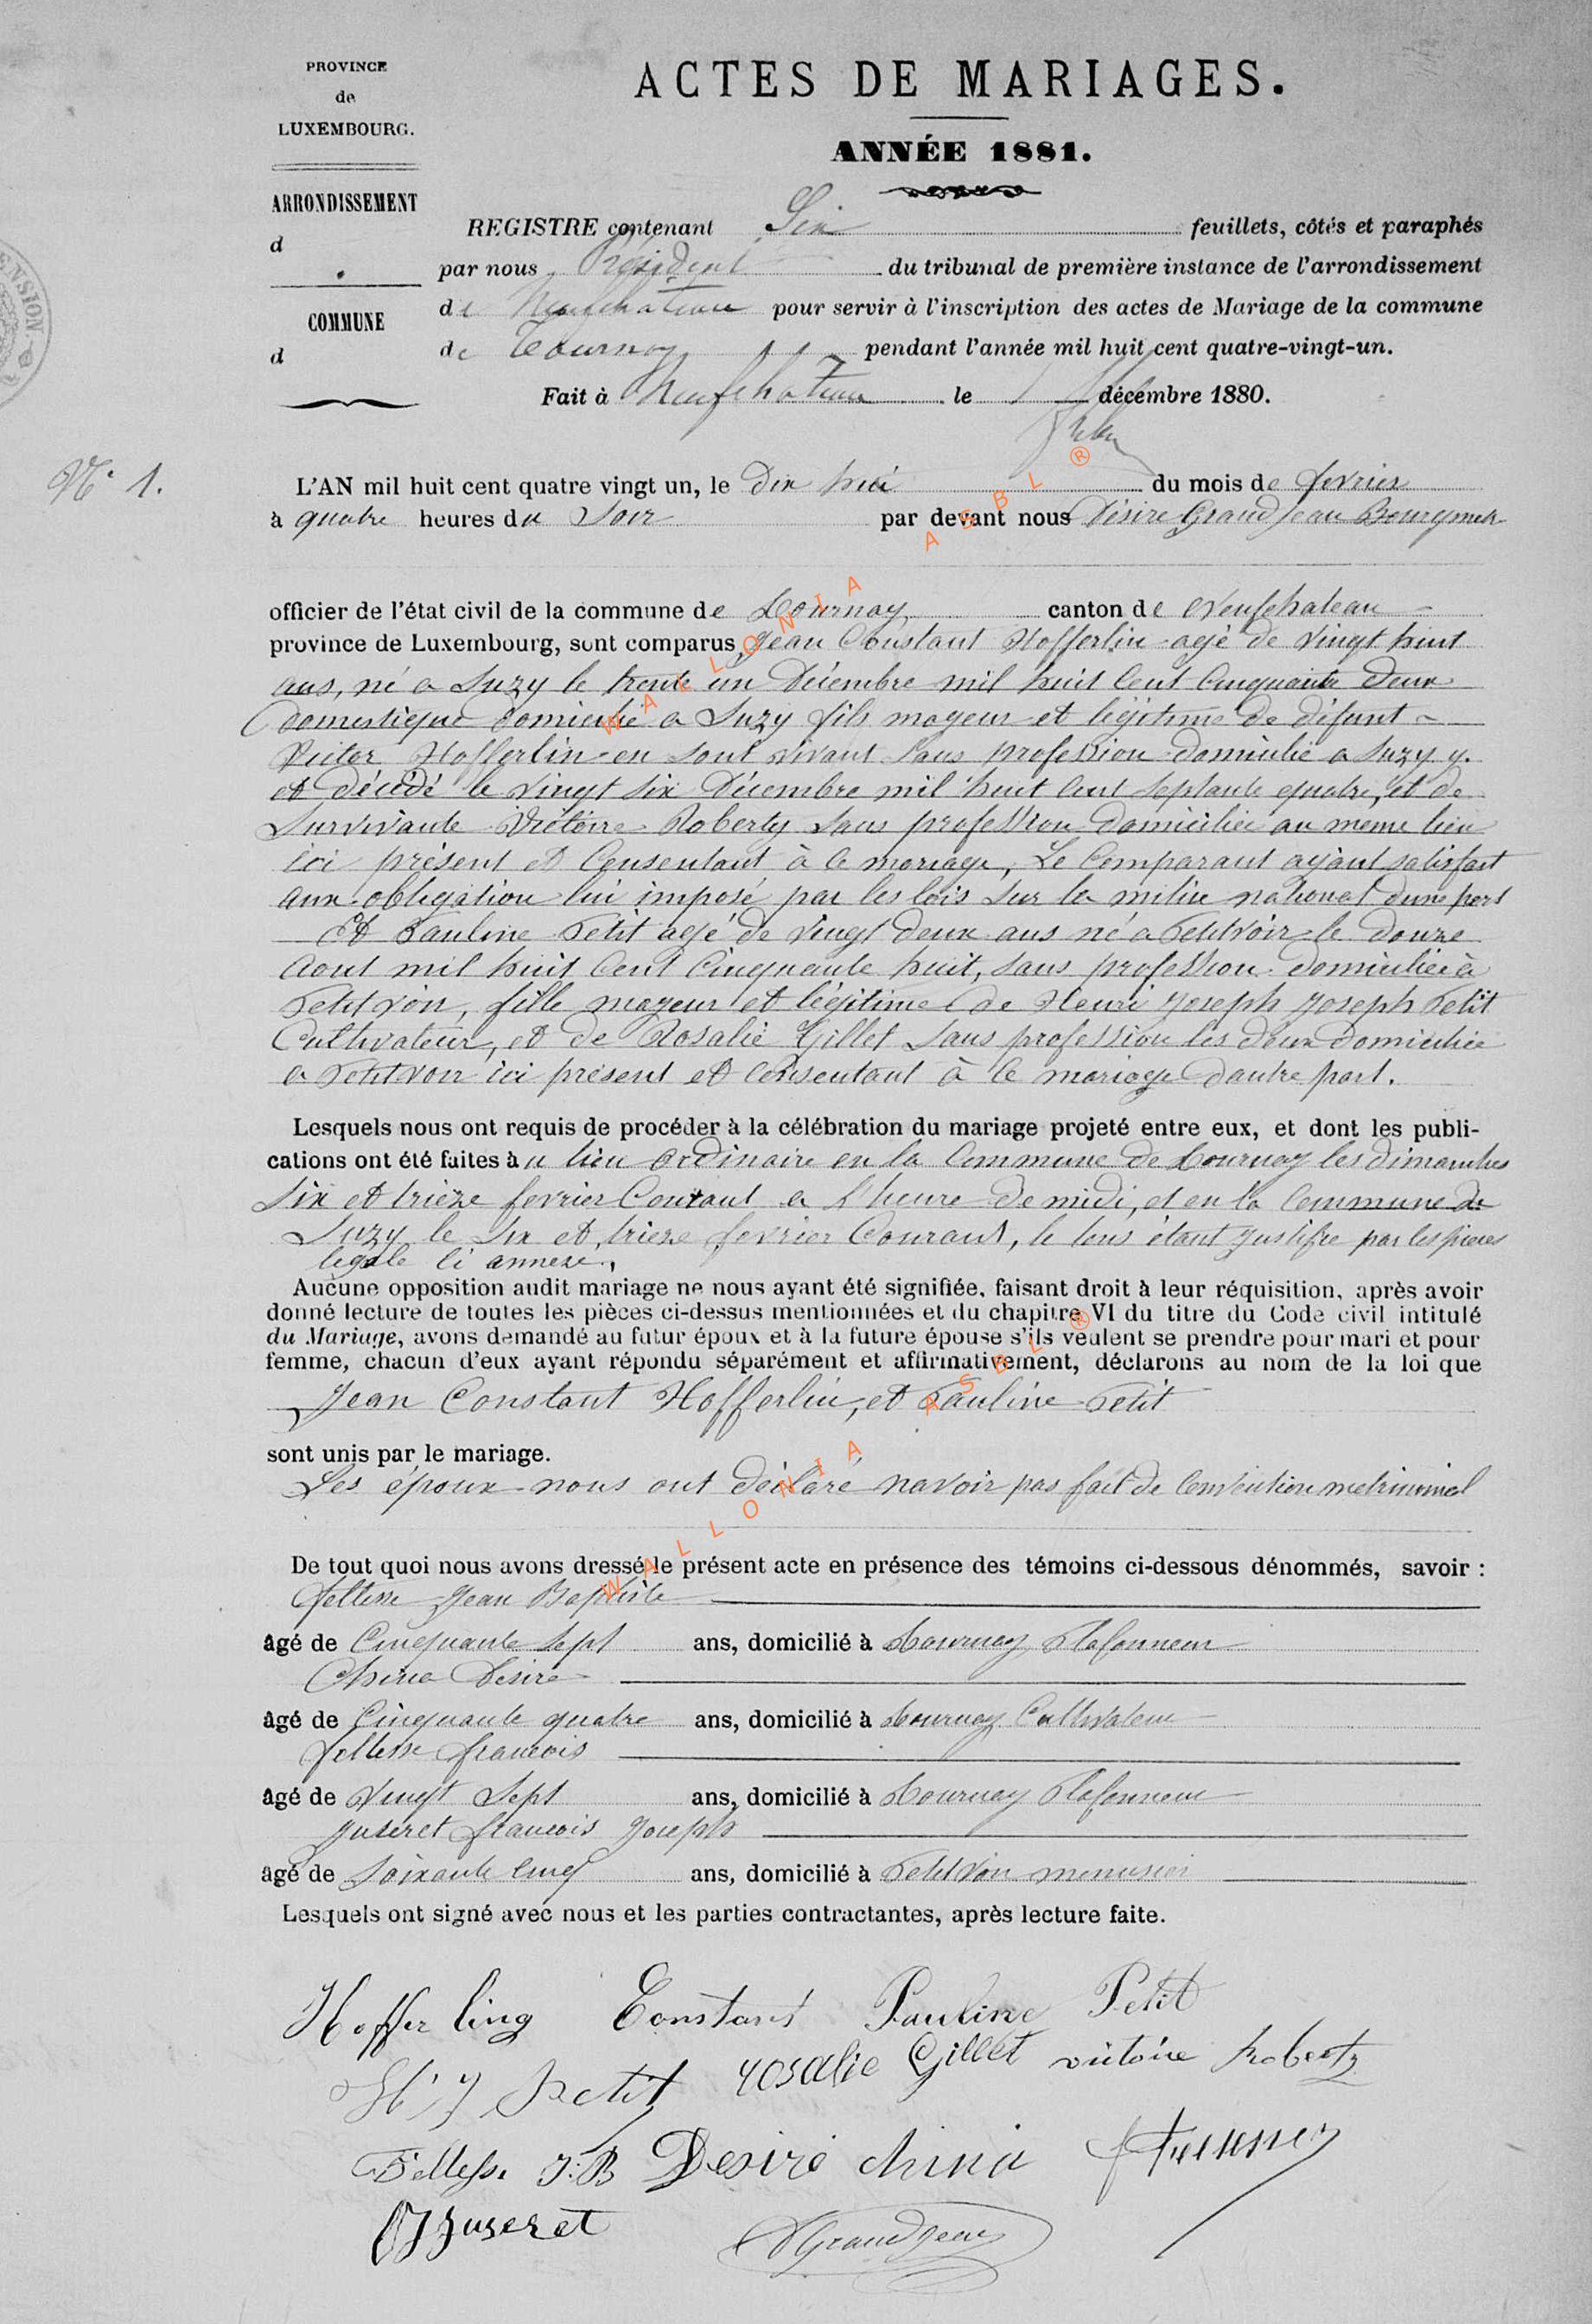 PROVINCE
de
LUXEMBOURG.
ARRONDISSEMENT
d
COMMUNE
d
ACTES DE MARIAGES.
ANNÉE 1881.
REGISTRE contenant Six feuillets, côtés et paraphés
par nous Président du tribunal de première instance de l'arrondissement
de Neufchateau pour servir à l'inscription des actes de Mariage de la commune
de Tournay pendant l'année mil huit cent quatre-vingt-un.
Fait à Neufchateau le décembre 1880.
N° 1.
L'AN mil huit cent quatre vingt un, le Dix huit du mois de fevrier
à quatre heures du Soir par devant nous Désiré Grandjean Bourgmestre
officier de l'état civil de la commune de Tournay canton de Neufchateau
province de Luxembourg, sont comparus Jean Constant Hofferlin agé de vingt huit
ans, né a Suzy le trente un Décembre mil huit Cent Cinquante Deux
Domestique domicilié a Suzy fils mageur et légitime de défunt
Victor Hofferlin en sont vivant sans profession domicilié a Suzy y
et décédé le vingt six Décembre mil huit Cent septante quatre, et de
Survivante Victoire Roberty sans profession Domiciliée au meme lieu
ici présent et Consentant à ce mariage, Le Comparant ayant satisfait
aux obligation lui imposé par les lois sur la milice national dune part
Et Pauline Petit agé de Vingt deux ans né a Petitvoir le douze
Aout mil huit Cent Cinquante huit, sans profession domiciliée à
Petitvoir, fille mageur et légitime de Henri Joseph Joseph Petit
Cultivateur, et de Rosalie Gillet sans profession les deux domiciliée
a Petitvoir ici présent et Consentant à ce mariage dautre part.
Lesquels nous ont requis de procéder à la célébration du mariage projeté entre eux, et dont les publi-
cations ont été faites au lieu ordinaire en la Commune de Tournay les dimanches
Six et trieze fevrier Courant a l'heure de midi, et en la Commune de
Suzy le six et trieze fevrier Courant, le tous étant justifie par les pieces
legale ci annexe.
Aucune opposition audit mariage ne nous ayant été signifiée, faisant droit à leur réquisition, après avoir
donné lecture de toutes les pièces ci-dessus mentionnées et du chapitre VI du titre du Code civil intitulé
du Mariage, avons demandé au futur époux et à la future épouse s'ils veulent se prendre pour mari et pour
femme, chacun d'eux ayant répondu séparément et affirmativement, déclarons au nom de la loi que
Jean Constant Hofferlin, et Pauline Petit
sont unis par le mariage.
Les époux nous ont déclaré navoir pas fait de Convention metrimonial
De tout quoi nous avons dressé le présent acte en présence des témoins ci-dessous dénommés, savoir :
Feltesse Jean Baptiste
âgé de Cinquante sept ans, domicilié à Tournay Plafonneur
China Désiré
âgé de Cinquante quatre ans, domicilié à Tournay Cultivateur
Feltesse francois
âgé de Vingt Sept ans, domicilié à Tournay Plafonneur
Juseret francois Joseph
âgé de Soixante Cinq ans, domicilié à Petitvoir menusier
Lesquels ont signé avec nous et les parties contractantes, après lecture faite.
Hofferling Constant Pauline Petit
H J Petit rosalie Gillet victoire Robertz
Feltesse J.B Desiré china
Juseret DGrandjean
WALLONIA ASBL ®
WALLONIA ASBL ®